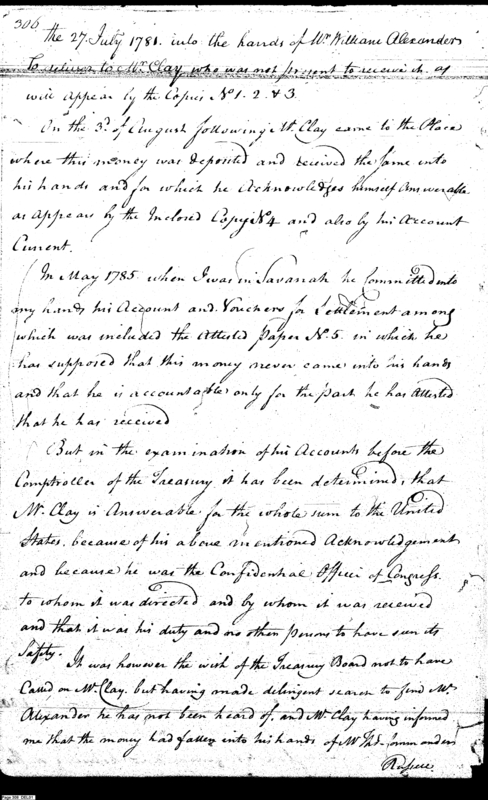 306
the 27. July 1781. into the hands of Mr. William Alexander
To return to Mr. Clay who was not present to receive it. as
will appear by the Copies No 1. 2. & 3.
On the 3d. of August following Mr. Clay came to the Place
where this money was deposited and received the same into
his hands and for which he Acknowledges himself Answerable
as appears by the Inclosed Copy No 4 and also by his Account
Current.
In May 1785. when I was in Savanah he Committed into
my hands his Account and Vouchers for Settlement among
which was included the Attested Paper No. 5. in which he
has supposed that this money never came into his hands
and that he is accountable only for the part he has attested
that he has received
But in the examination of his Accounts before the
Comptroller of the Treasury it has been determined, that
Mr. Clay is Answerable for the whole sum to the United
States. because of his above mentioned Acknowledgement,
and because he was the Confidential Officer of Congress.
to whom it was directed and by whom it was received
and that it was his duty and no other Persons to have seen its
Safety.
It was however the wish of the Treasury Board not to have
Called on Mr. Clay. but having made delingent search to find Mr.
Alexander he has not been heard of. and Mr Clay having informed
me that the money had fallen into his hands of Mr